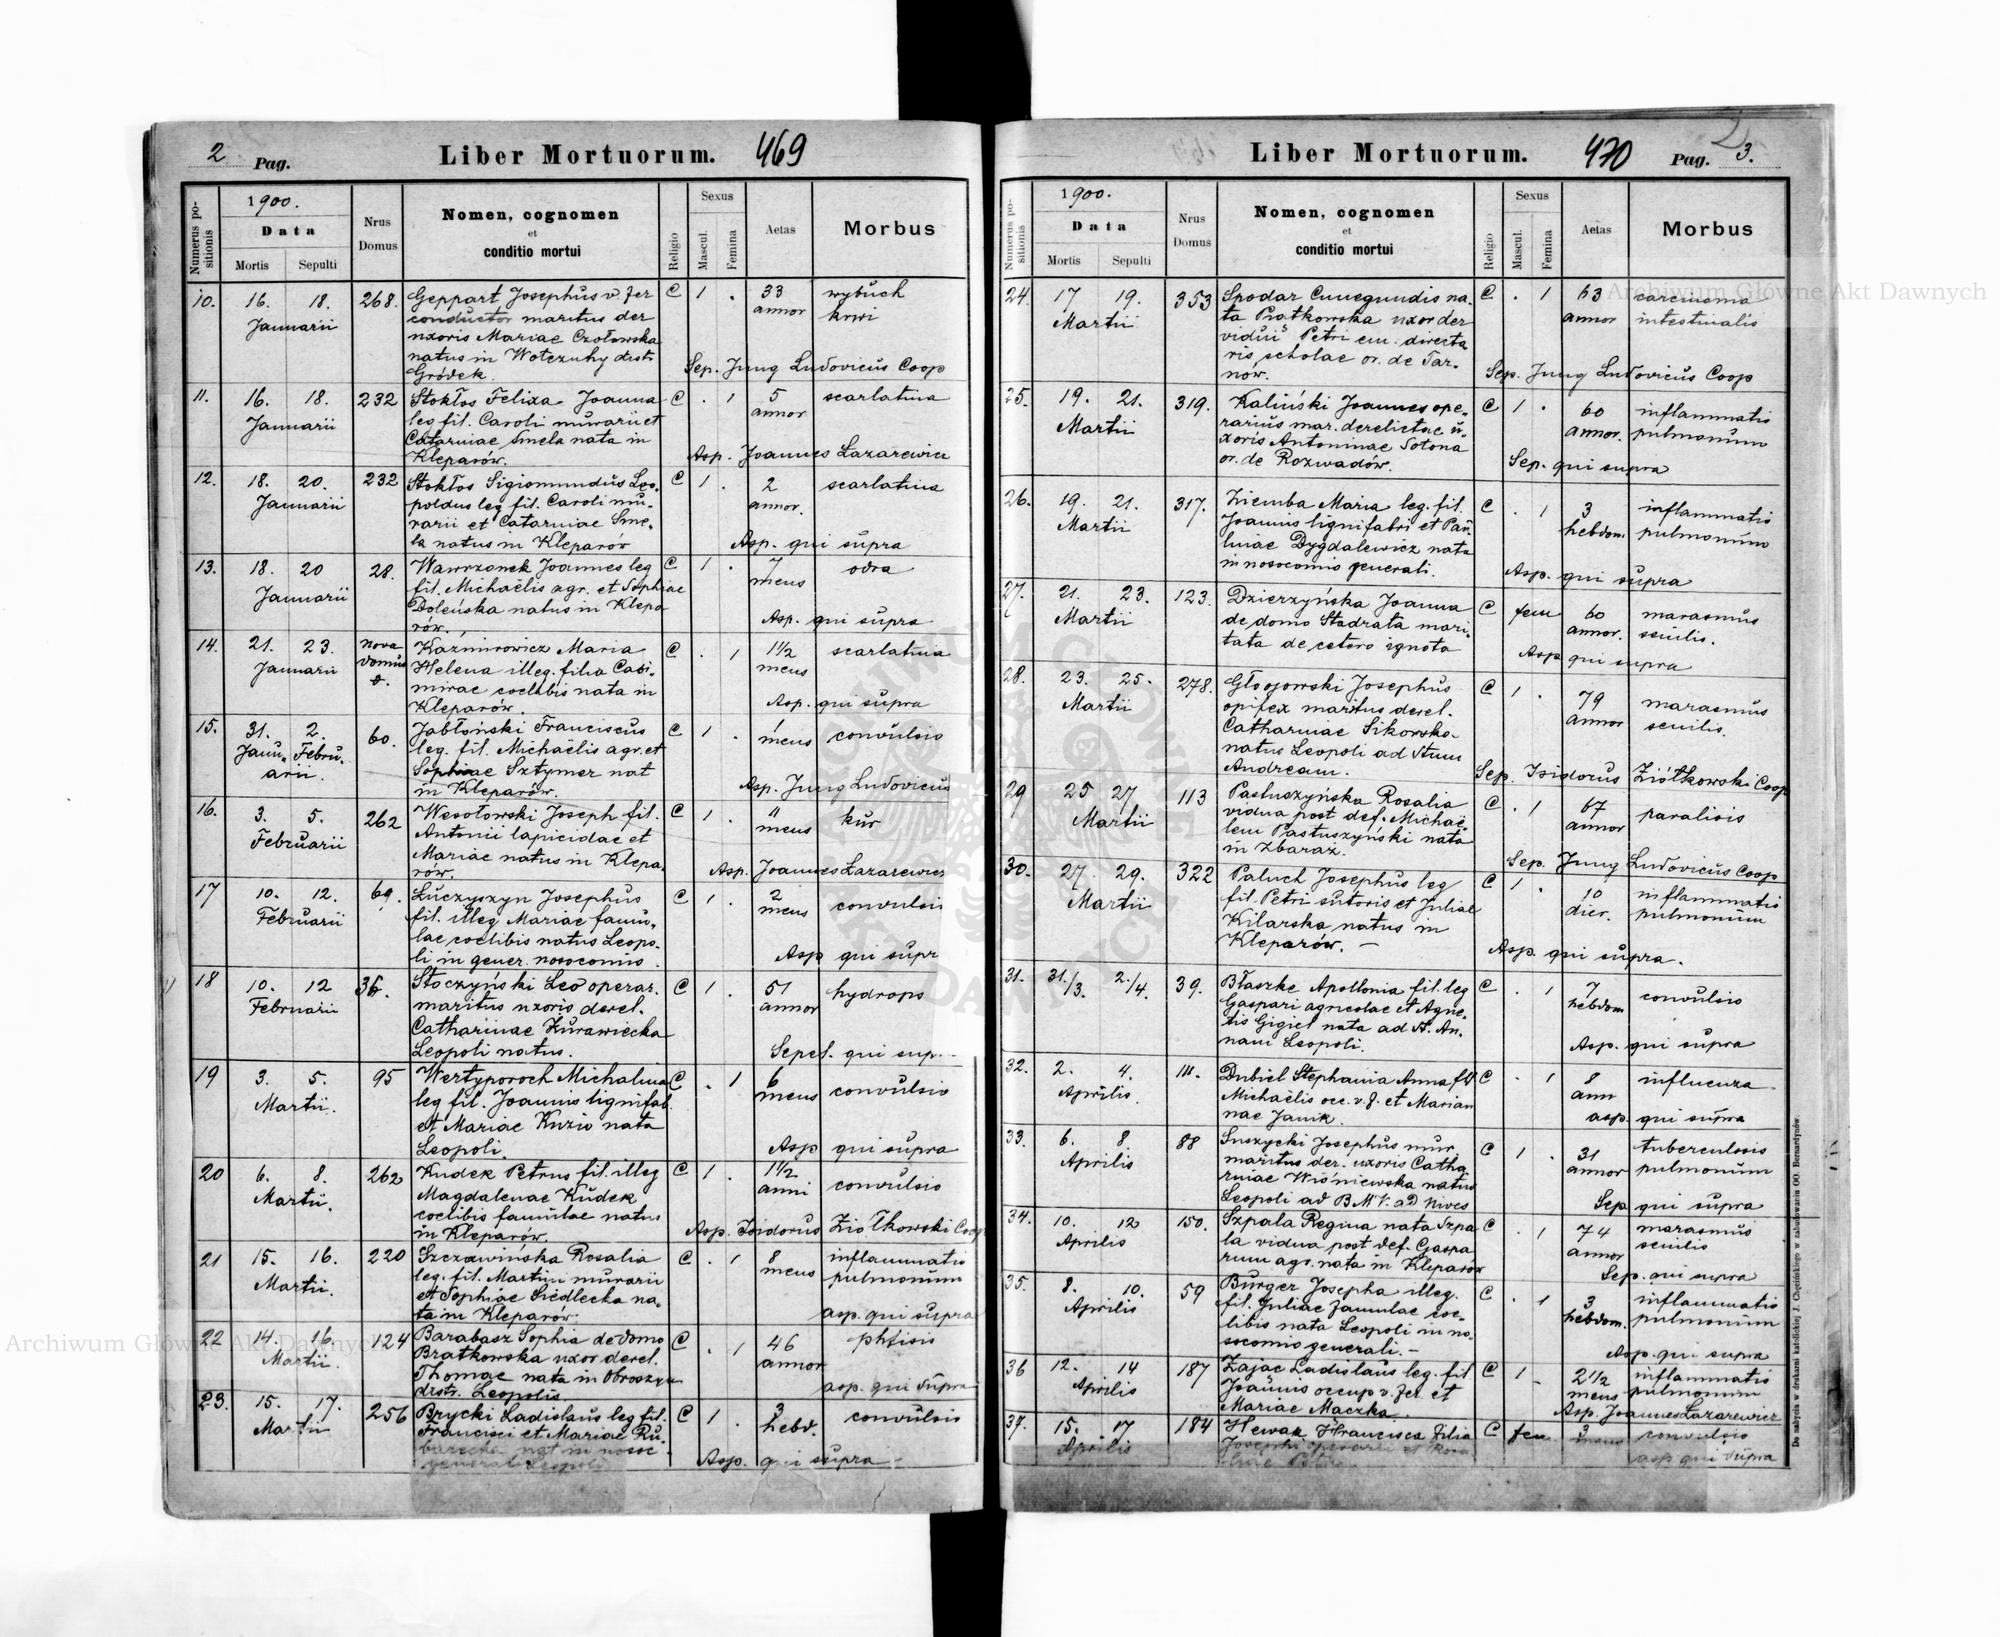 2 Pag. Liber Mortuorum. 469
Numerus positionis
1900.
Data
Mortis Sepulti
Nrus Domus
Nomen, cognomen
et
conditio mortui
Religio
Sexus
Mascul. Femina
Aetas
Morbus
10. 16. 18. Januarii 268. Geppart Josephus v. fer C 1 . 33 annor wybuch krwi
conductor maritus der
uxoris Mariae Czołowska
natus in distr
Gródek.
Sep. Jung Ludovicus Coop
11. 16. 18. Januarii 232 Stokłos Felixa Joanna C . 1 5 annor scarlatina
leg fil. Caroli murarii et
Catarinae Smela nata in
Kleparów.
Asp. Joannes Lazarewicz
12. 18. 20. Januarii 232 Stokłos Sigismundus Leo- C 1 . 2 annor. scarlatina
poldus leg fil. Caroli mu-
rarii et Catarinae Sme-
la natus in Kleparów
Asp. qui supra
13. 18. 20 Januarii 28. Wawrzonek Joannes leg C 1 . 7 mens odra
fil. Michaëlis agr. et Sophiae
Doleńska natus in Klepa
rów.
Asp. qui supra
14. 21. 23. Januarii nova domus Kazmirowicz Maria C . 1 1 1/2 mens scarlatina
Helena illeg. filia Casi-
mirae coelibis nata in
Kleparów.
Asp. qui supra
15. 31. 2. Janu- Febru- arii. 60. Jabłoński Franciscus C 1 . 1 mens convulsio
leg. fil. Michaëlis agr. et
Sophiae Sztymer nat
in Kleparów.
Asp. Jung Ludovicus
16. 3. 5. Februarii 262 Wesołowski Joseph fil. C 1 . 11 mens kur
Antonii lapicidae et
Mariae natus in Klepa-
rów.
Asp. Joannes Lazarewicz
17 10. 12. Februarii 69. Łuczyszyn Josephus C 1 . 2 mens convulsio
fil. illeg Mariae famu-
lae coelibis natus Leopo-
li in gener. nosocomio.
Asp qui supr
18 10. 12 Februarii 36. Stoczyński Leo operar. C 1 . 51 annor hydrops
maritus uxoris derel.
Catharinae Żurawiecka
Leopoli natus.
Sepel. qui sup.
19 3. 5. Martii. 95 Wertyporoch Michalina C . 1 6 mens convulsio
leg fil. Joannis lignifab.
et Mariae Kuzio nata
Leopoli.
Asp qui supra
20 6. 8. Martii. 262 Kudek Petrus fil. illeg C 1 . 1 1/2 anni convulsio
Magdalenae Kudek
coelibis famulae natus
in Kleparów.
Asp. Isidorus Ziółkowski Coop
21 15. 16. Martii. 220 Szczawińska Rosalia C . 1 8 mens inflammatio pulmonum
leg. fil. Martini murarii
et Sophiae Siedlecka na-
ta in Kleparów.
asp. qui supra
22 14. 16. Martii. 124 Barabasz Sophia de domo C . 1 46 annor phtisis
Bratkowska uxor derel.
Thomae nata in Obroszyn
distr. Leopolis
asp. qui supra
23. 15. 17. Martii 256 Brycki Ladislaus leg fil. C 1 . 3 hebd. convulsio
Francisci et Mariae Ru-
nat in nosoc.
generali Leopoli
Asp. qui supra
Liber Mortuorum. 470 Pag. 3.
Numerus positionis
1900.
Data
Mortis Sepulti
Nrus Domus
Nomen, cognomen
et
conditio mortui
Religio
Sexus
Mascul. Femina
Aetas
Morbus
24. 17 19. Martii 353 Spodar Cunegundis na- C . 1 63 annor carcinoma intestinalis
ta Piątkowska uxor der
Petri em. directo
ris scholae or. de Tar-
nów.
Sep. Jung Ludovicus Coop
25. 19. 21. Martii 319. Kaliński Joannes ope- C 1 . 60 annor. inflammatio pulmonum
rarius mar. derelictae u-
xoris Antoninae Sotona
or. de Rozwadów.
Sep. qui supra
26. 19. 21. Martii 317. Ziemba Maria leg. fil. C . 1 3 hebdom inflammatio pulmonum
Joannis lignifabri et Pau-
linae Dygdalewicz nata
in nosocomio generali.
Asp. qui supra
27. 21. 23. Martii 123. Dzierzyńska Joanna C fem 60 annor. marasmus senilis.
de domo Stadrata mari-
tata de cetero ignota
Asp qui supra
28. 23. 25. Martii 278. Głogowski Josephus C 1 . 79 annor marasmus senilis.
opifex maritus derel.
Catharinae Sikorska
natus Leopoli ad Stum
Andream.
Sep. Isidorus Ziółkowski Coop
29 25 27 Martii 113 Pastuszyńska Rosalia C . 1 67 annor paralisis
vidua post def. Michaë-
lem Pastuszyński nata
in Zbaraż.
Sep. Jung Ludovicus Coop
30. 27. 29. Martii 322 Paluch Josephus leg C 1 . 10 dier. inflammatio pulmonum
fil. Petri sutoris et Juliae
Kilarska natus in
Kleparów. —
Asp. qui supra.
31. 31./3. 2./4. 39. Błaszke Apollonia fil. leg C . 1 7 hebdom convulsio
Gaspari agricolae et Agne-
tis Gigiel nata ad St. An-
nam Leopoli.
Asp. qui supra
32. 2. 4. Aprilis. 111. Dubiel Stephania Anna fil C . 1 8 ann influenza
Michaëlis occ. v. f. et Marian
nae Janik.
asp. qui supra
33. 6. 8 Aprilis 88 Suszycki Josephus mur C 1 . 31 annor tuberculosis pulmonum
maritus der. uxoris Catha
rinae Wiśniewska natus
Leopoli ad B. M. V. ad Nives
Sep qui supra
34. 10. 12 Aprilis 150. Szpala Regina nata Szpa C . 1 74 annor marasmus senilis
la vidua post def. Gaspa
rum agr. nata in Kleparów
Sep. qui supra
35. 8. 10. Aprilis 59 Burger Josepha illeg. C . 1 3 hebdom. inflammatio pulmonum
fil. Juliae famulae coe-
libis nata Leopoli in no-
socomio generali. —
Asp. qui supra
36 12. 14 Aprilis 187 Zając Ladislaus leg. fil C 1 - 2 1/2 mens inflammatio pulmonum
Joannis occup v. fer. et
Mariae Maczka.
Asp. Joannes Lazarewicz
37. 15. 17 Aprilis 184 Hewak Francisca filia C fem. 3 mens convulsio
Josephi operarii et Rosa
liae
asp qui supra
Do nabycia w drukarni katolickiej J. Chęcińskiego w zabudowaniu OO. Bernardynów.
Archiwum Główne Akt Dawnych
Archiwum Główne Akt Dawnych
ARCHIWUM GŁÓWNE AKT DAWNYCH